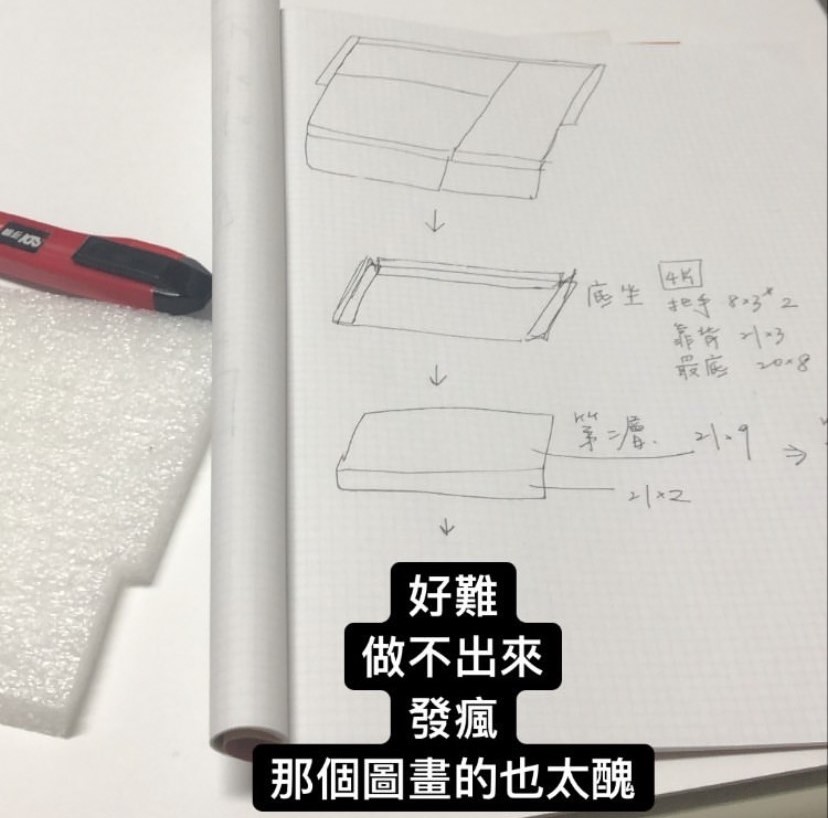 底坐
4片
把手 8×3*2
靠背 21×3
最底 20×8
第二層. 21×9
21×2
好難
做不出來
發瘋
那個圖畫的也太醜